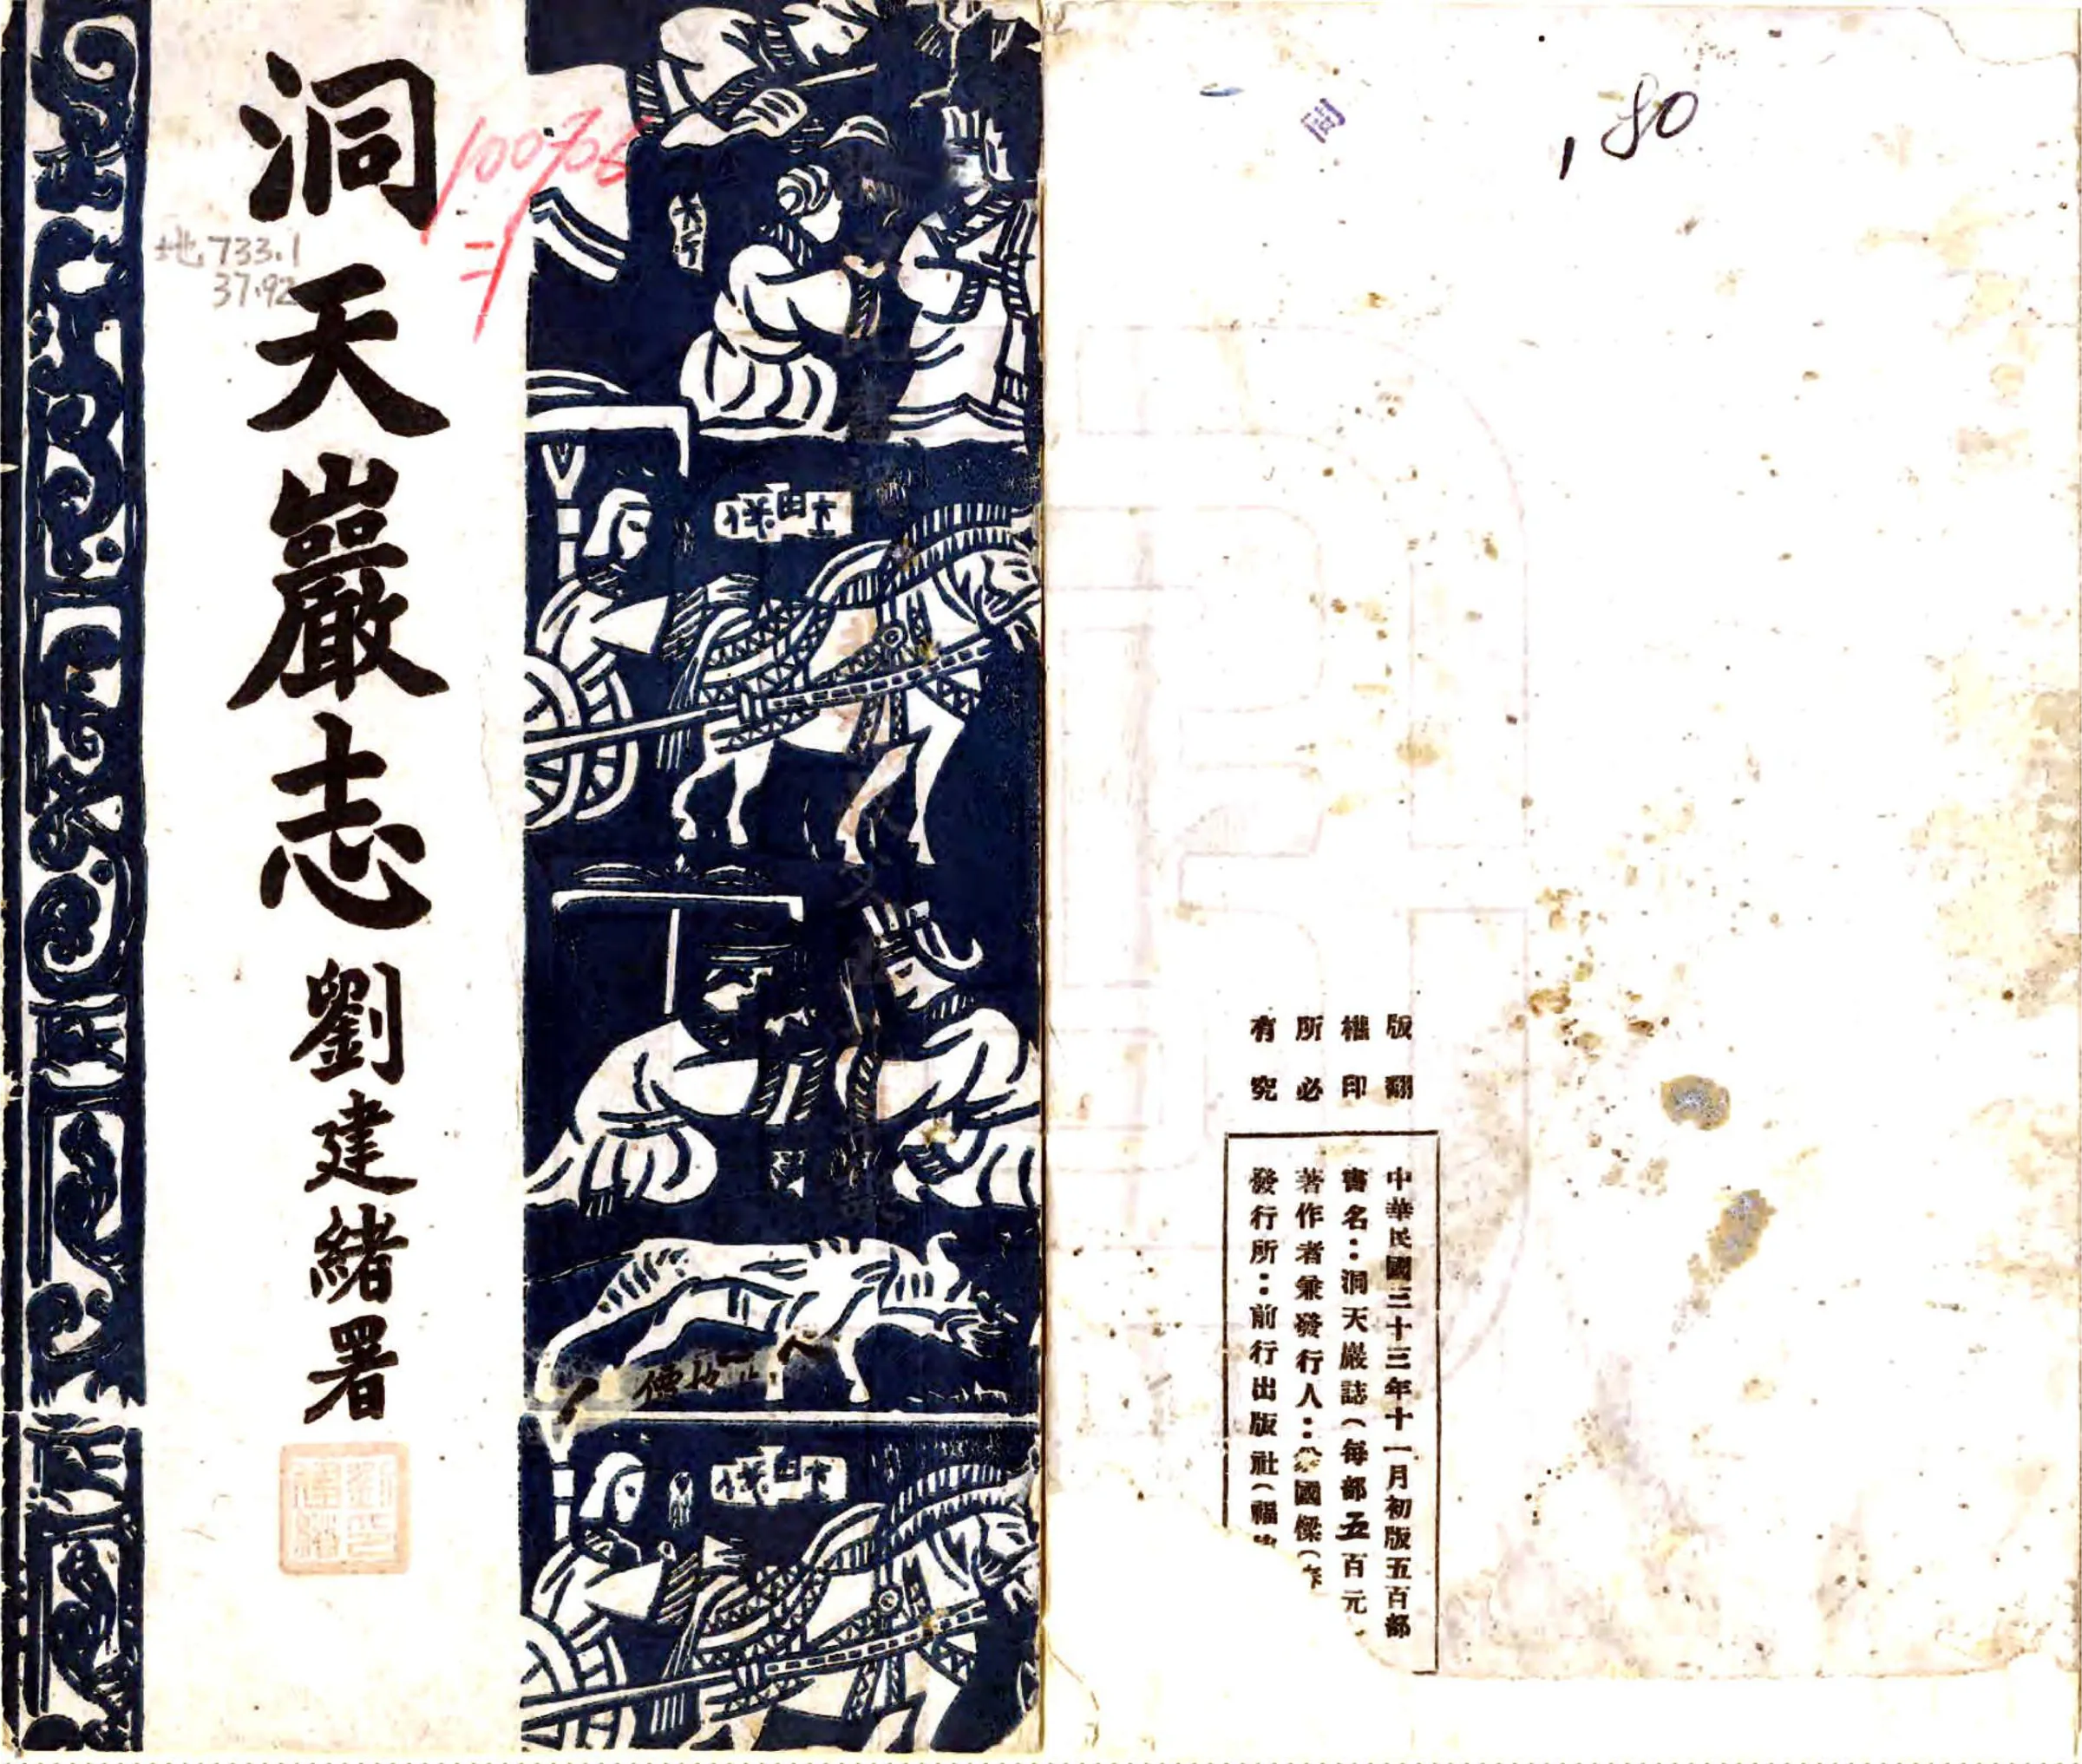 洞天巖志
劉建緒署
100706
地 733.1
37.92
.80
版權所有
翻印必究
中華民國三十三年十一月初版五百部
書名：洞天巖誌（每部五百元
著作者兼發行人：國樑（
發行所：前行出版社（福